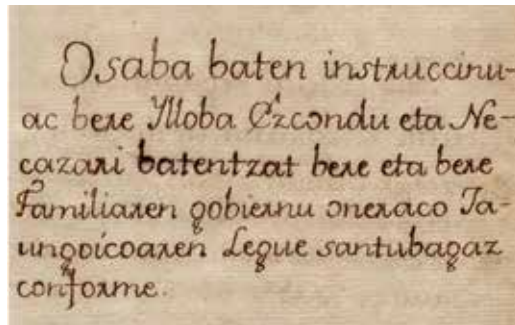 Osaba baten instruccinu-
ac bere Ylloba Ezcondu eta Ne-
cazari batentzat bere eta bere
Familiaren gobiernu oneraco Ja-
ungoicoaren Legue santubagaz
conforme.